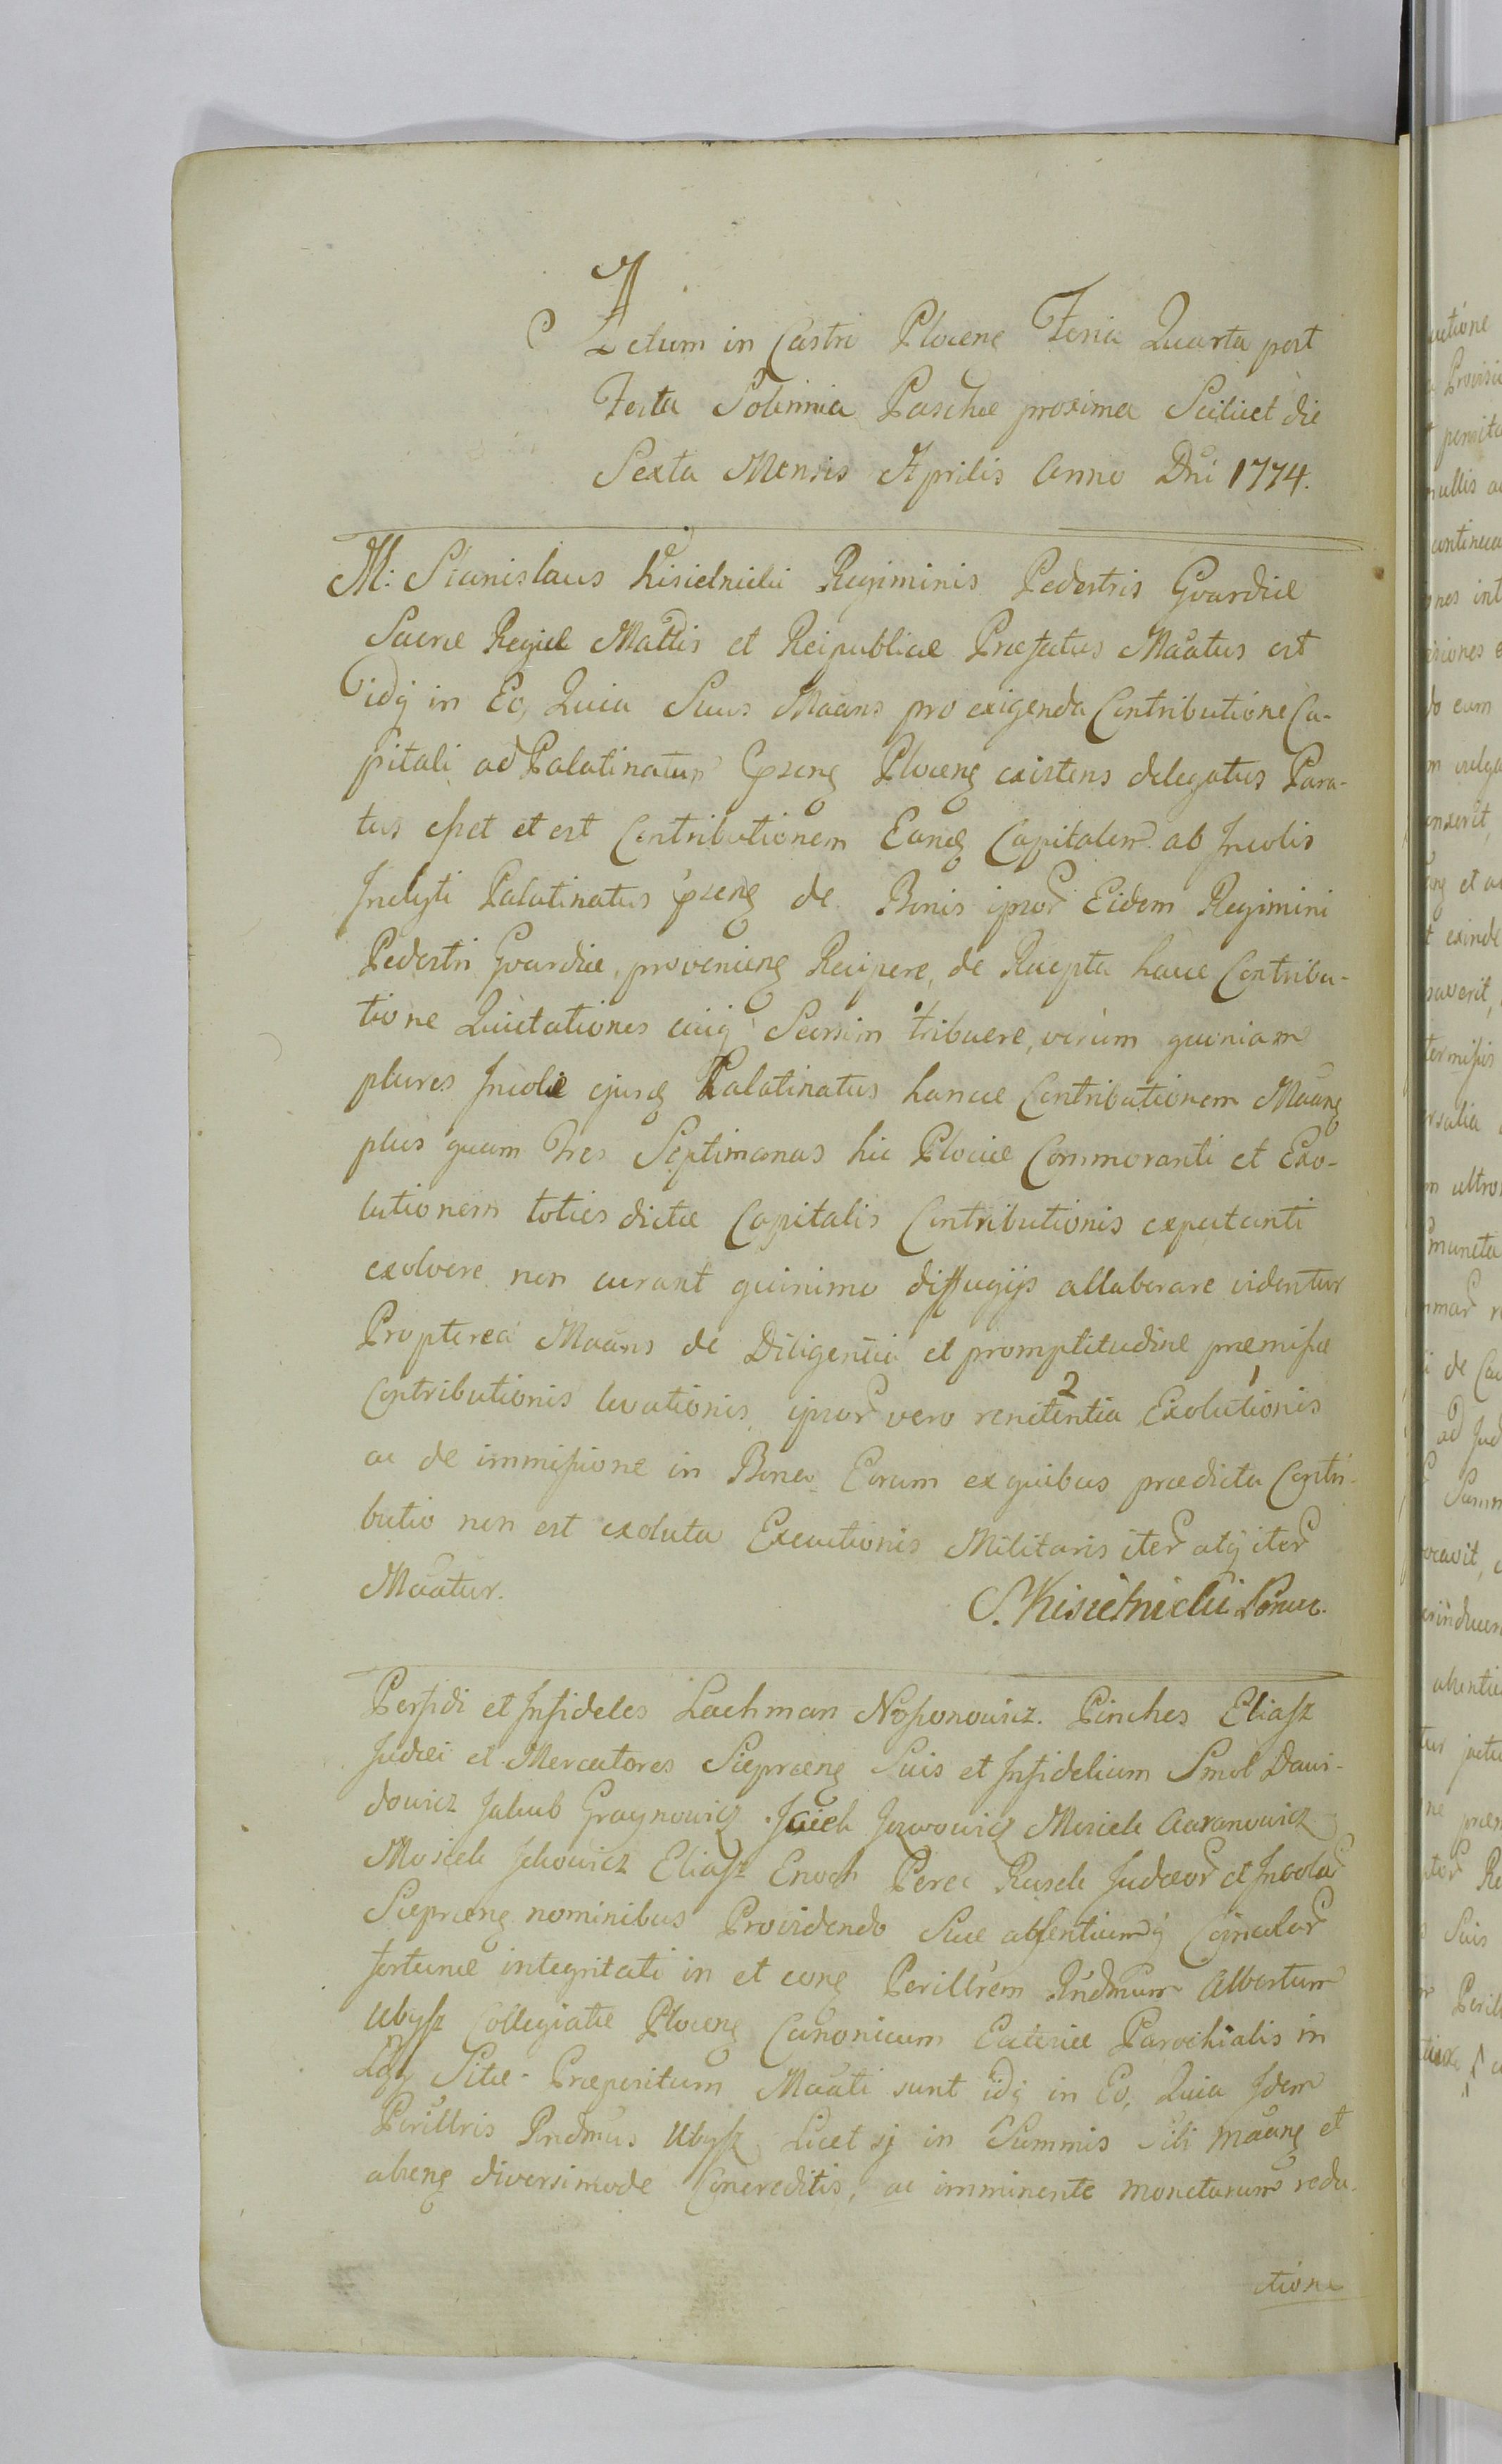 Actum in Castro Plocens Feria Quarta post
Festa Solennia Paschæ proxima Scilicet die
Sexta Mensis Aprilis Anno Dni 1774.
M: Stanislaus Kisielnicki Regiminis Pedestris Gvardiæ
Sacræ Regiæ Mattis et Reipublicae Præfatus Maatus est
idq in Eo, Quia Suus Maans pro exigenda Contributione Ca-
pitali ad Palatinatum Plocens existens delegatus Para-
tus esset et est Contributionem Eands Capitalem ab Incolis
Inclyti Palatinatus de Bonis ipsor Eidem Regimini
Pedestri Gvardiæ, proveniens Recipere, de Recepta hacce Contribu-
tione Quietationes cuiq Sursim tribuere, verum quoniam
plures Incolæ ejusd Palatinatus hancce Contributionem Maans
plus quam Tres Septimanas hic Plociæ Commoranti et Exo-
lutionem toties dictæ Capitalis Contributionis expectanti
exolvere non curant quinimo diffugijs allaborare videntur
Propterea Maans de Diligentia et promptitudine præmissæ
Contributionis levationis, ipsor vero renitentia 2 Exolutionis 1
ac de immissione in Bona Eorum ex quibus prædicta Contri-
butio non est exoluta Executionis Militaris iter atq iter
Maatur.
S. Kisielnicki
Perfidi et Infideles Lachman Nosonowicz. Pinches Eliasz
Judæi et Mercatores Sieprcens Suis et Infidelium Smol Dawi-
dowicz Jakub Josek Mosiek Aaranowicz
Mosiek Jckowicz Eliasz Enoch Perec Rusek Judæor et Incolar
Sieprcens nominibus Providendo Suæ absentiumq
fortunæ integritati in et cons Perillrem Rndmum Albertum
Ubysz Collegiatæ Plocens Canonicum Eccliæ Parochialis in
Sitæ Præpositum Maati sunt idq in Eo, Quia Idem
Perillris Rndmus Ubysz Licet in Summis Sibi maans et
absens diversimode Concreditis, ac imminente monetarum redu-
ctione